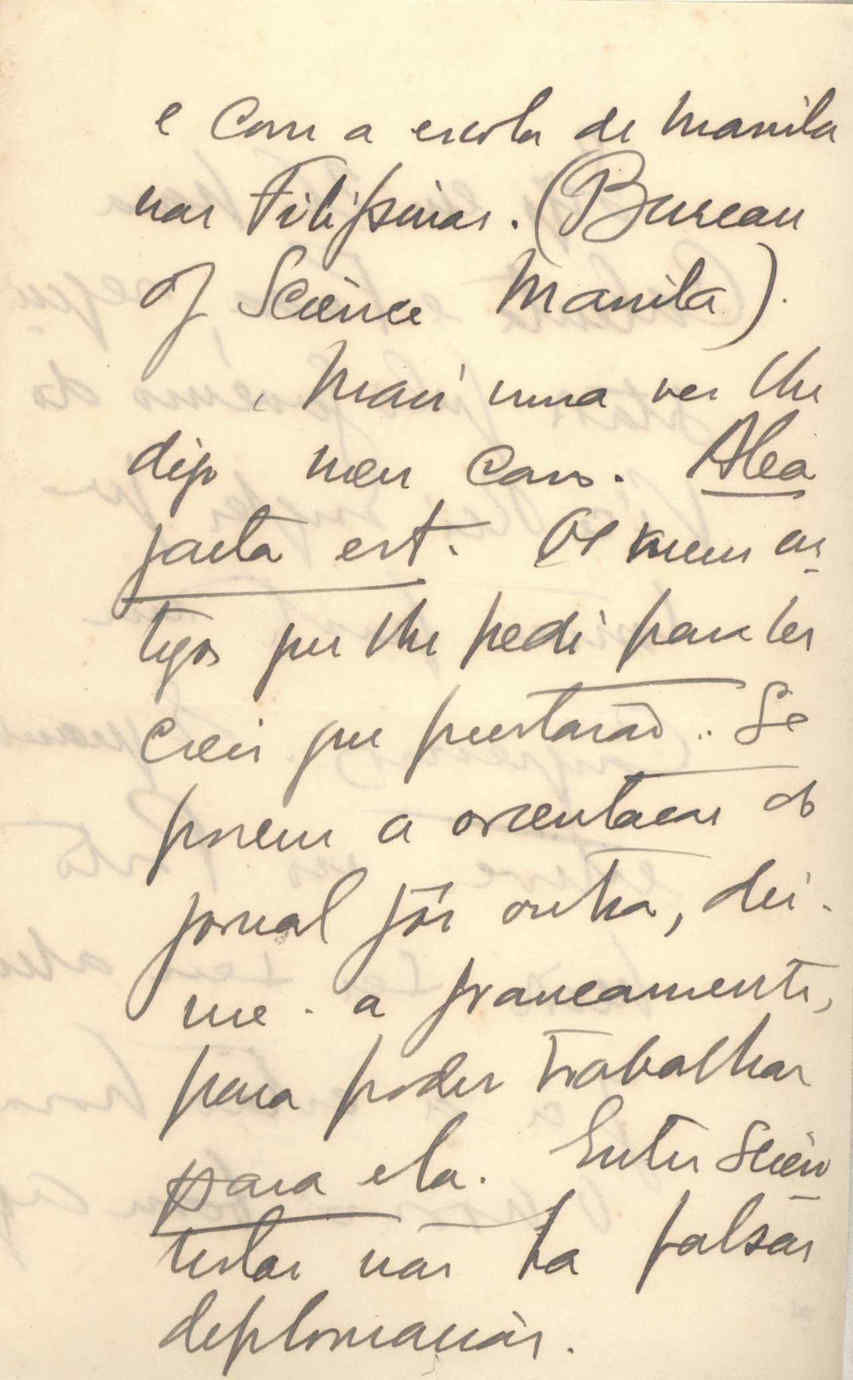 e com a escola de Manila
nas Filipinas. (Bureau
of Science Manila).
Mais uma vez lhe
digo meu caro. Alea
jacta est. Os meus ar-
tigos que lhe pedi para ler
creio que prestarão. Se
porem a orientação do
jornal fôr outra, dei-
me-a francamente,
para poder trabalhar
para ela. Entre scien
tistas não ha falsas
deplomacias.